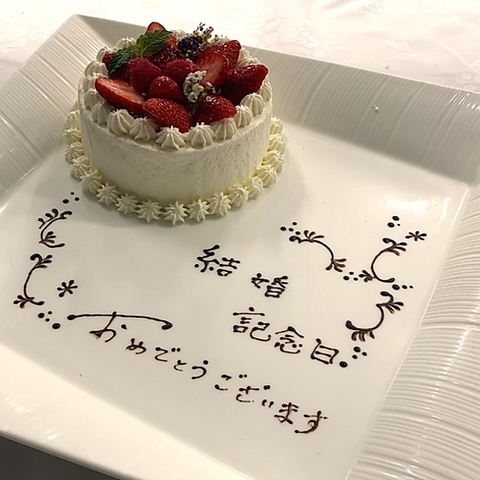 結婚
記念日
おめでとうございます